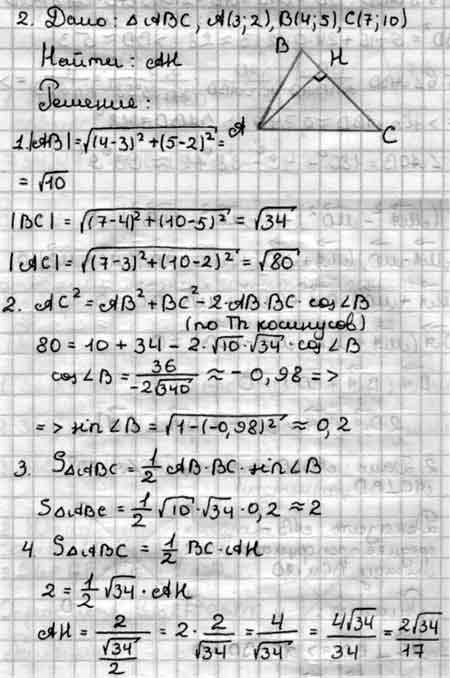 2. Дано: △ABC, A(3;2), B(4;5), C(7;10)
Найти: AH
Решение:
B
H
A
C
1. |AB| = √((4-3)²+(5-2)²) =
= √10
|BC| = √((7-4)²+(10-5)²) = √34
|AC| = √((7-3)²+(10-2)²) = √80
2. AC² = AB² + BC² - 2·AB·BC·cos∠B
(по Th косинусов)
80 = 10 + 34 - 2·√10·√34·cos∠B
cos∠B = 36/(-2√340) ≈ -0,98 =>
=> sin∠B = √(1-(-0,98)²) ≈ 0,2
3. S△ABC = 1/2 AB·BC·sin∠B
S△ABC = 1/2 √10·√34·0,2 ≈ 2
4. S△ABC = 1/2 BC·AH
2 = 1/2 √34·AH
AH = 2/(√34/2) = 2·2/√34 = 4/√34 = 4√34/34 = 2√34/17